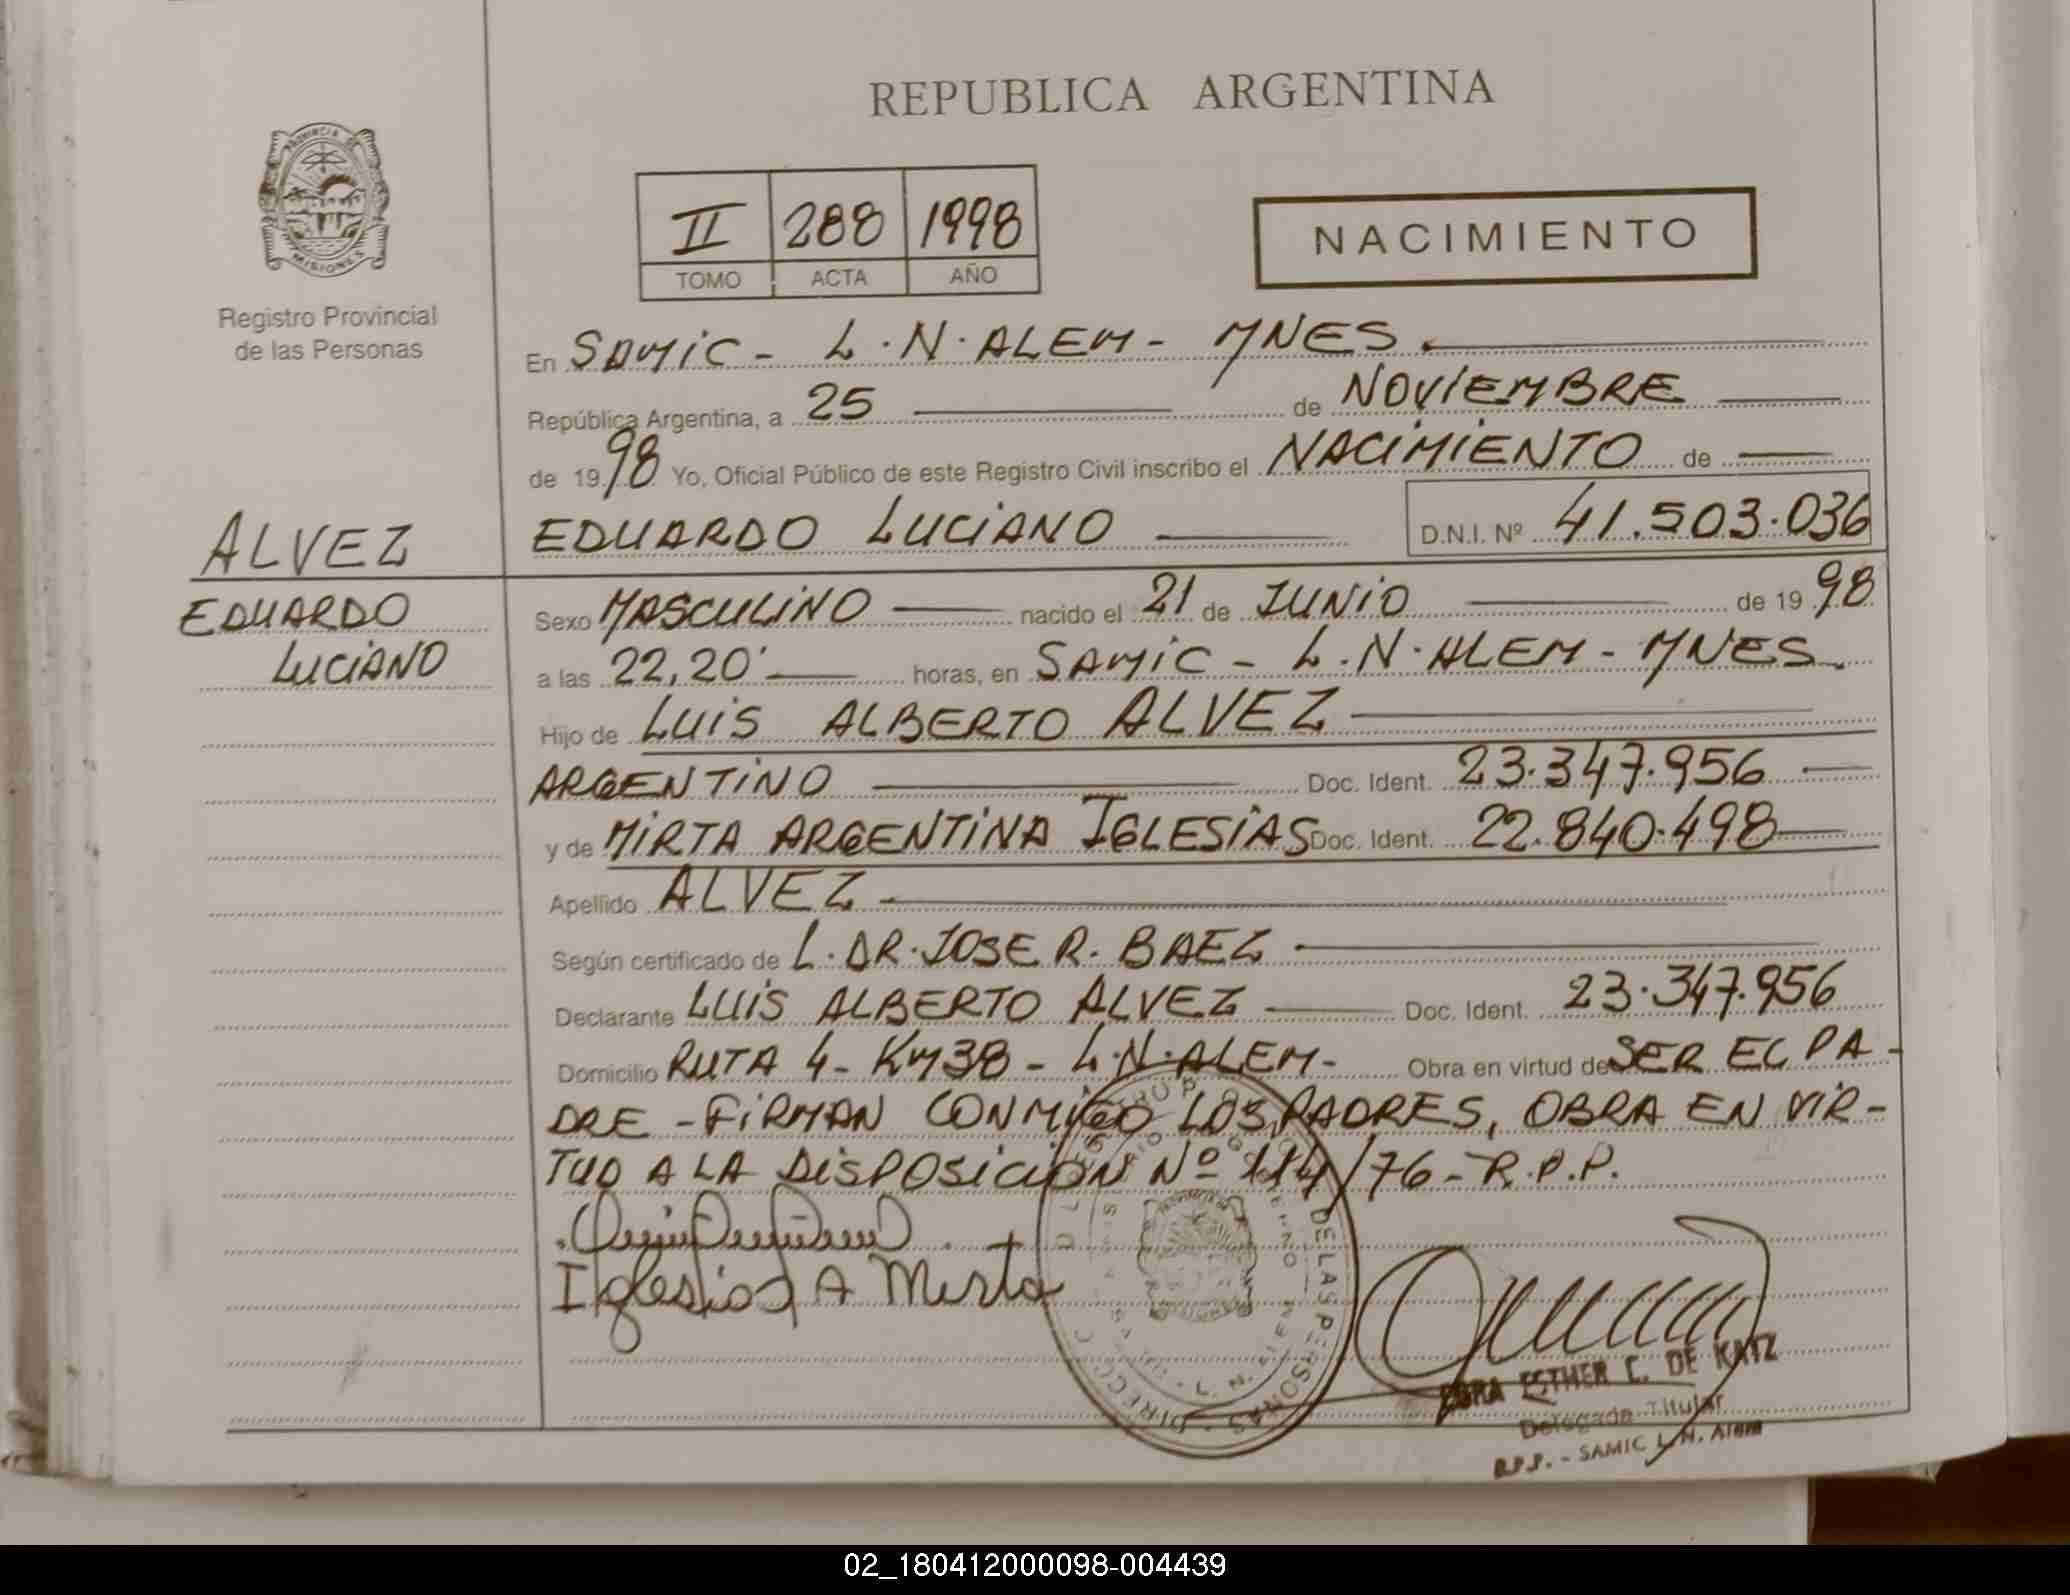 REPUBLICA ARGENTINA
PROVINCIA DE
MISIONES
Registro Provincial
de las Personas
II 288 1998
TOMO ACTA AÑO
NACIMIENTO
En SAMIC - L.N.ALEM - MNES.
República Argentina, a 25 de NOVIEMBRE
de 1998 Yo, Oficial Público de este Registro Civil inscribo el NACIMIENTO de
EDUARDO LUCIANO D.N.I. Nº 41.503.036
ALVEZ
EDUARDO
LUCIANO
Sexo MASCULINO nacido el 21 de JUNIO de 1998
a las 22,20' horas, en SAMIC - L.N.ALEM - MNES.
Hijo de LUIS ALBERTO ALVEZ
ARGENTINO Doc. Ident. 23.347.956
y de MIRTA ARGENTINA IGLESIAS Doc. Ident. 22.840.498
Apellido ALVEZ
Según certificado de L.DR.JOSE R. BAEZ
Declarante LUIS ALBERTO ALVEZ Doc. Ident. 23.347.956
Domicilio RUTA 4 - KM38 - L.N.ALEM - Obra en virtud de SER EL PA-
DRE - FIRMAN CONMIGO LOS PADRES, OBRA EN VIR-
TUD A LA DISPOSICION Nº 114/76 - R.P.P.
Iglesias A Mirta
DE LAS PERSONAS
L. N. ALEM
ESTHER C. DE KATZ
Delegada Titular
R.P.P. - SAMIC L.N. Alem
02_180412000098-004439